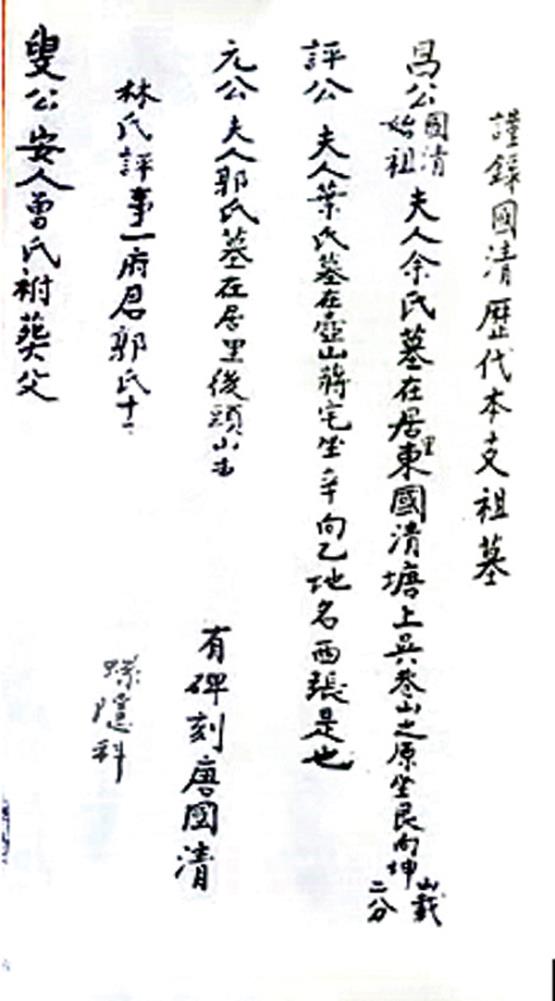 謹錄國清歷代本支祖墓
昌公國清始祖夫人余氏墓在居里東國清塘上吳巷山之原坐艮向坤山載二分
評公夫人葉氏墓在壺山蔣宅坐辛向乙地名西張是也
元公夫人郭氏墓在居里後頭山
有碑刻唐國清
林氏評事一府君郭氏十一
叟公安人曾氏祔葬父